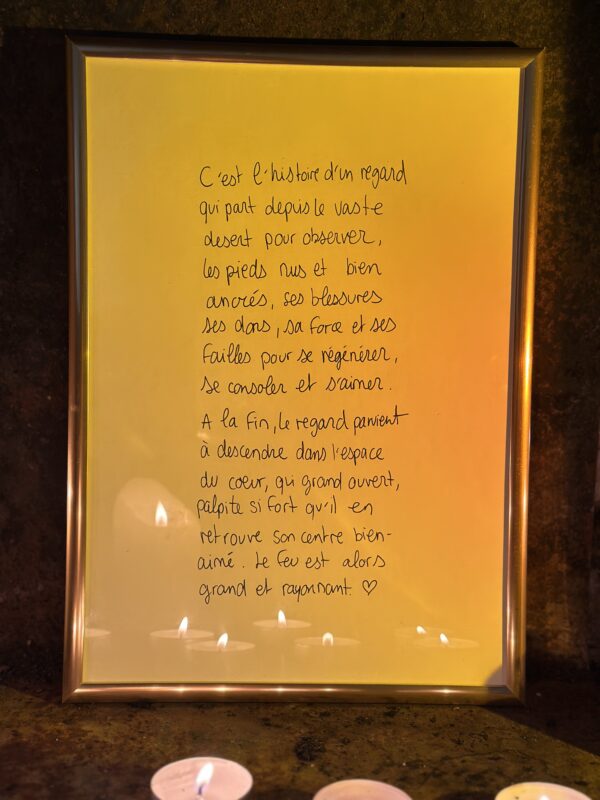 C'est l'histoire d'un regard
qui part depuis le vaste
desert pour observer,
les pieds nus et bien
ancrés, ses blessures
ses dons, sa force et ses
failles pour se régénérer,
se consoler et s'aimer.
A la fin, le regard parvient
à descendre dans l'espace
du coeur, qui grand ouvert,
palpite si fort qu'il en
retrouve son centre bien-
aimé. Le feu est alors
grand et rayonnant ♡